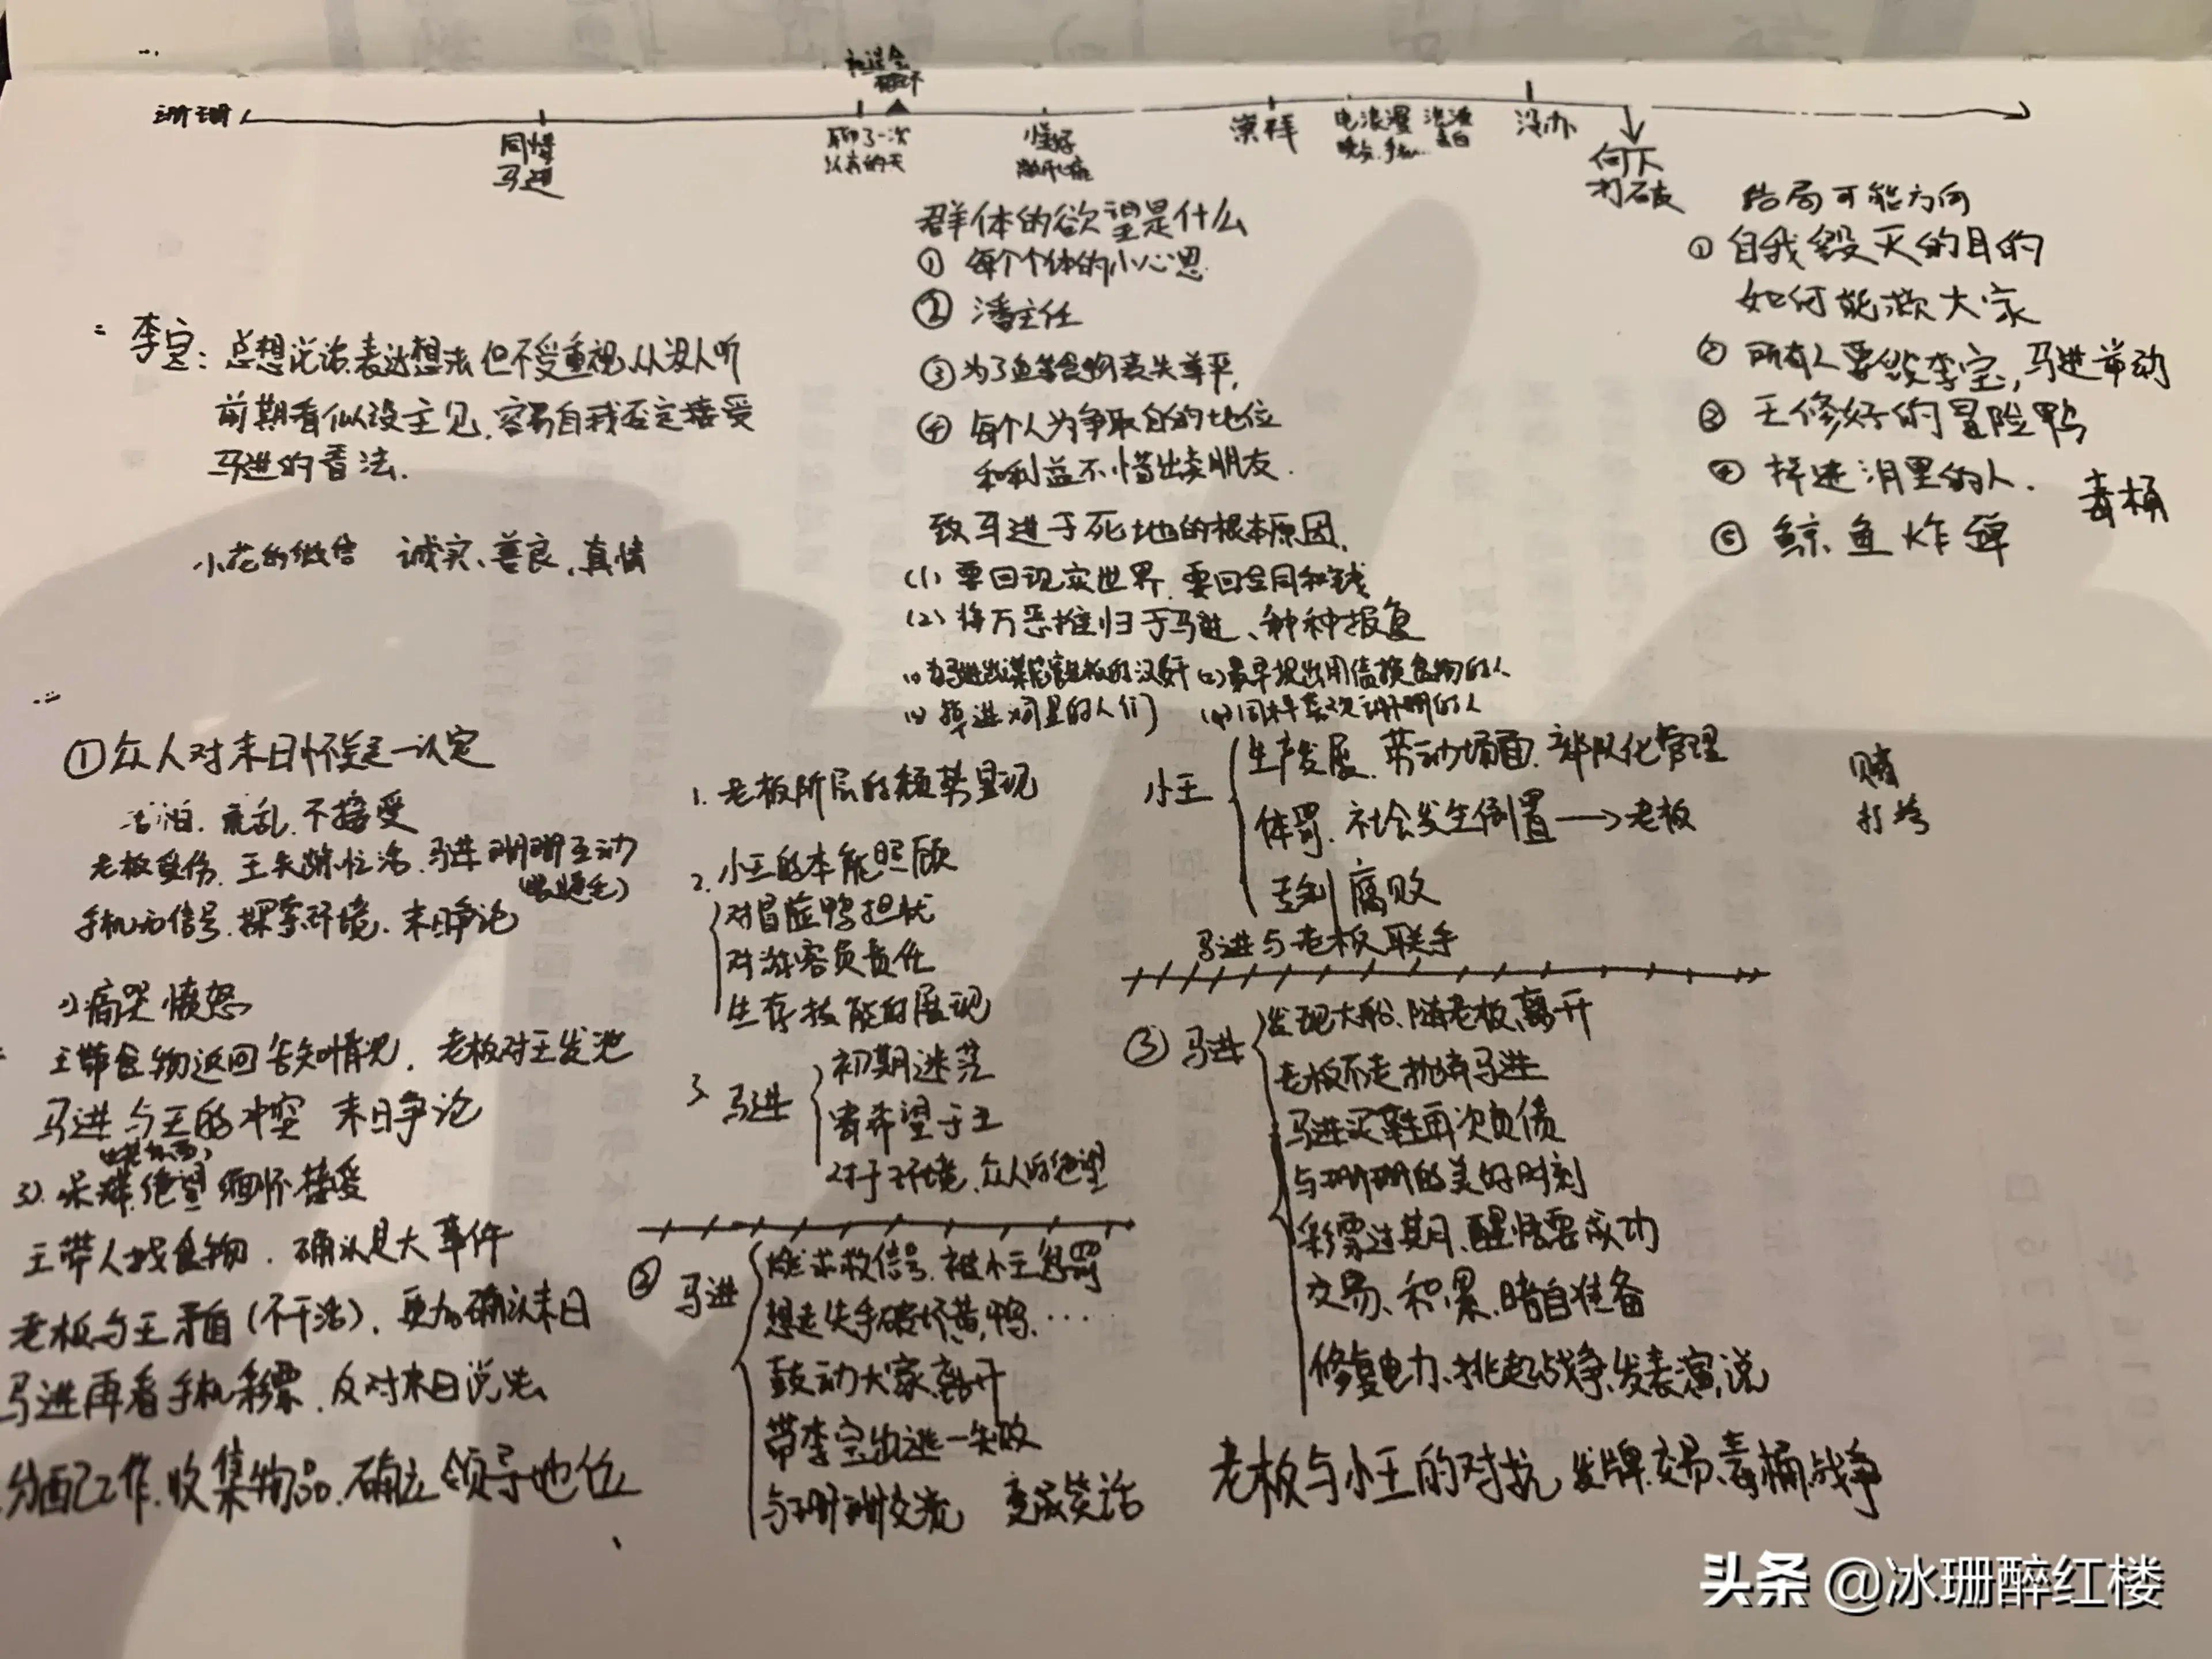 珊珊
同情
马进
聊了一次
以前的天
崇拜
电 浪漫
没办
何不
打破
群体的欲望是什么
① 每个个体的小心思
② 潘主任
③ 为了 食物丧失尊严,
④ 每个人为争取自的地位
和利益不惜出卖朋友.
致马进于死地的根本原因,
(1) 要回现实世界, 要回合同和钱
(2) 将万恶推归于马进、种种报复
(2) 最早提出用债换食物的人
掉进 里的人们 同样喜欢珊珊的人
结局可能方向
① 自我毁灭的目的
如何能救大家
② 所有人要 李宝, 马进带动
③ 王修好的冒险鸭
④ 掉进 里的人.
毒桶
⑤ 鲸鱼炸弹
二 李宝: 总想说话, 表达想法但不受重视, 从没人听
前期看似没主见, 容易自我否定接受
马进的看法.
小花的微信 诚实、善良、真情
三
① 众人对末日怀疑—认定
害怕. 慌乱. 不接受
老板受伤. 王 忙活. 马进珊珊互动
手机无信号. 探索环境. 末日争论
2) 痛哭 愤怒
王带食物返回告知情况. 老板对王发泄
马进与王的冲突 末日争论
3). 绝望 缅怀接受
王带人找食物. 确认是大事件
老板与王矛盾 (不干活). 更加确认末日
马进再看手机彩票. 反对末日说法
分配工作. 收集物品. 确立领导地位
1. 老板阶层的颓势显现
2. 小王的本能照顾
对冒险鸭担忧
对游客负责任
生存技能的展现
3 马进
初期迷茫
寄希望于王
对于环境、众人的绝望
② 马进
燃求救信号. 被小王惩罚
想走失手破坏黄鸭. …
鼓动大家离开
带李宝出逃—失败
与珊珊交流 变成笑话
小王
生产发展. 劳动场面. 部队化管理
体罚. 社会发生倒置 → 老板
专制 腐败
马进与老板联手
③ 马进
发现大船、随老板离开
老板不走抛弃马进
马进买鞋再次负债
与珊珊的美好时刻
彩票过期、醒悟要成功
交易、积累、暗自准备
修复电力、挑起战争、发表演说
老板与小王的对抗 发牌. 交易. 毒桶. 战争
头条 @冰珊醉红楼